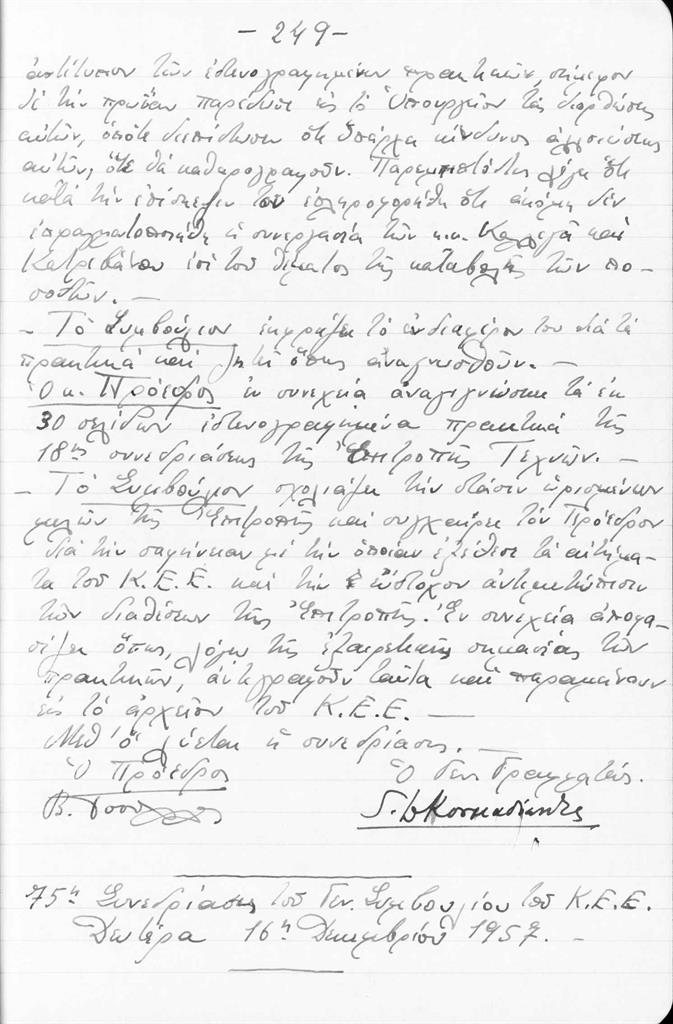 - 249 -
ἀντίτυπον τῶν ἐστενογραφημένων πρακτικῶν, σήμερον
δὲ τὴν πρωΐαν παρέδωσε εἰς τὸ Ὑπουργεῖον τὰς διορθώσεις
αὐτῶν, ὁπότε διεπίστωσεν ὅτι ὑπάρχει κίνδυνος ἀλλοιώσεως
αὐτῶν, ὅτε θὰ καθαρογραφοῦν. Παρεμπιπτόντως λέγει ὅτι
κατὰ τὴν ἐπίσκεψίν του ἐπληροφορήθη ὅτι ἀκόμη δὲν
ἐπραγματοποιήθη ἡ συνεργασία τῶν κ.κ. καὶ
Κατριβάνου ἐπὶ τοῦ θέματος τῆς καταβολῆς τῶν πο-
σοστῶν. -
- Τὸ Συμβούλιον ἐκφράζει τὸ ἐνδιαφέρον του διὰ τὰ
πρακτικὰ καὶ ζητεῖ ὅπως ἀναγνωσθοῦν. -
Ὁ κ. Πρόεδρος ἐν συνεχείᾳ ἀναγιγνώσκει τὰ ἐκ
30 σελίδων ἐστενογραφημένα πρακτικὰ τῆς
18ης συνεδριάσεως τῆς Ἐπιτροπῆς Τεχνῶν. -
- Τὸ Συμβούλιον σχολιάζει τὴν στάσιν ὡρισμένων
μελῶν τῆς Ἐπιτροπῆς καὶ συγχαίρει τὸν Πρόεδρον
διὰ τὴν σαφήνειαν μὲ τὴν ὁποίαν ἐξέθεσε τὰ αἰτήμα-
τα τοῦ Κ.Ε.Ε. καὶ τὴν εὔστοχον ἀντιμετώπισιν
τῶν διαθέσεων τῆς Ἐπιτροπῆς. Ἐν συνεχείᾳ ἀποφα-
σίζει ὅπως, λόγῳ τῆς ἐξαιρετικῆς σημασίας τῶν
πρακτικῶν, ἀντιγραφοῦν ταῦτα καὶ παραμείνουν
εἰς τὸ ἀρχεῖον τοῦ Κ.Ε.Ε. -
Μεθ' ὃ λύεται ἡ συνεδρίασις. -
Ὁ Πρόεδρος Ὁ Γεν. Γραμματεύς.
Β.
75η Συνεδρίασις τοῦ Γεν. Συμβουλίου τοῦ Κ.Ε.Ε.
Δευτέρα 16η Δεκεμβρίου 1957. -